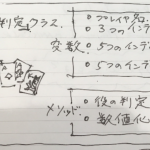 判定クラス
変数:
○プレイヤ名:
○3つのインデ
○5つのインデ
○5つのインデ
メソッド:
○役の判定
○数値化